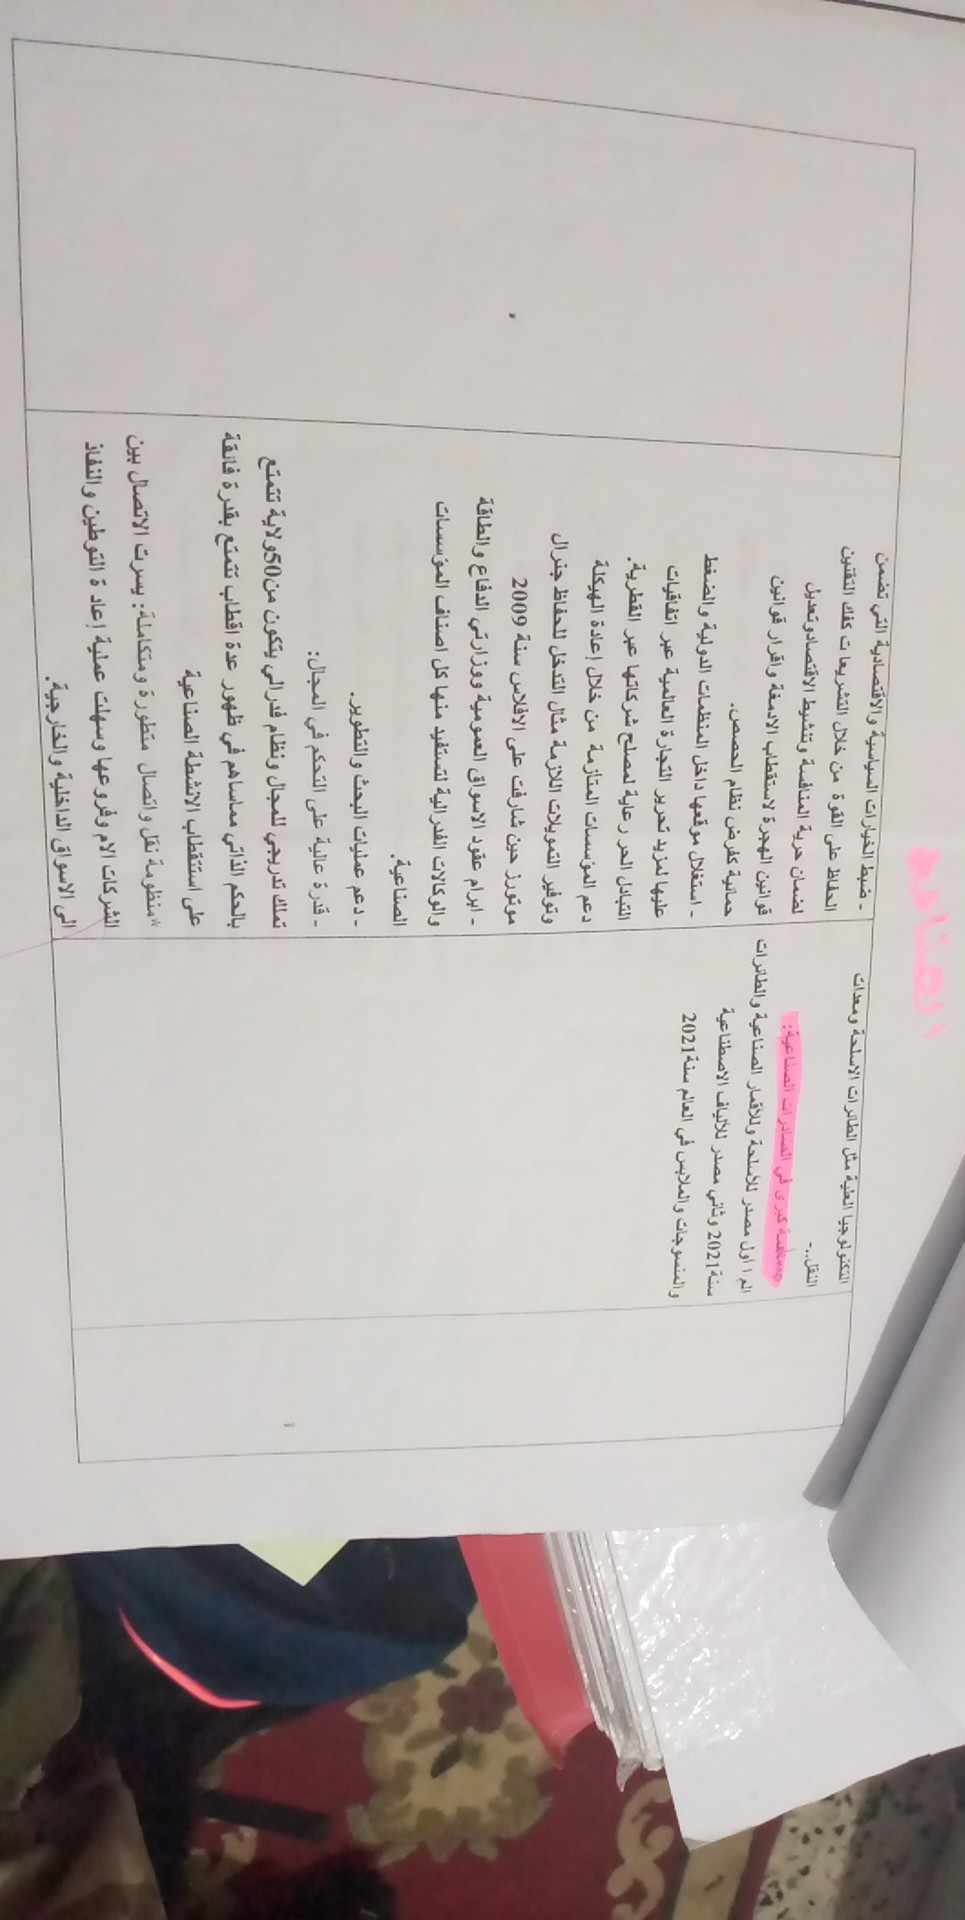 الصناعة
التكنولوجيا العلية مثل الطائرات الاسلحة ومعدات
النقل..-
مساهمة كبرى في الصادرات الصناعية:
الم ا أول مصدر للأسلحة وللأقمار الصناعية والطائرات
سنة2021 وثاني مصدر للألياف الاصطناعية
والمنسوجات والملابس في العالم سنة2021
- ضبط الخيارات السياسية والاقتصادية التي تضمن
الحفاظ على القوة من خلال التشريعا ت كفك التقنين
لضمان حرية المنافسة وتنشيط الاقتصادوتعديل
قوانين الهجرة لاستقطاب الادمغة واقرار قوانين
حمائية كفرض نظام الحصص.
- استغلال موقعها داخل المنظمات الدولية والضغط
عليها لمزيد تحرير التجارة العالمية عبر اتفاقيات
التبادل الحر رعاية لمصلح شركاتها عبر القطرية.
دعم المؤسسات المتازمة من خلال إعادة الهيكلة
وتوفير التمويلات اللازمة مثال التدخل للحفاظ جنرال
موتورز حين شارفت على الافلاس سنة 2009
- ابرام عقود الاسواق العمومية ووزارتي الدفاع والطاقة
والوكالات الفدرالية لتستفيد منها كل اصناف المؤسسات
الصناعية.
- دعم عمليات البحث والتطوير.
- قدرة عالية على التحكم في المجال:
تملك تدريجي للمجال ونظام فدرالي يتكون من50ولاية تتمتع
بالحكم الذاتي مماساهم في ظهور عدة اقطاب تتمتع بقدرة فائقة
على استقطاب الانشطة الصناعية
*منظومة نقل واتصال متطورة ومتكاملة: يسرت الاتصال بين
الشركات الام وفروعها وسهلت عملية إعاد ة التوطين والنفاذ
الى الاسواق الداخلية والخارجية.